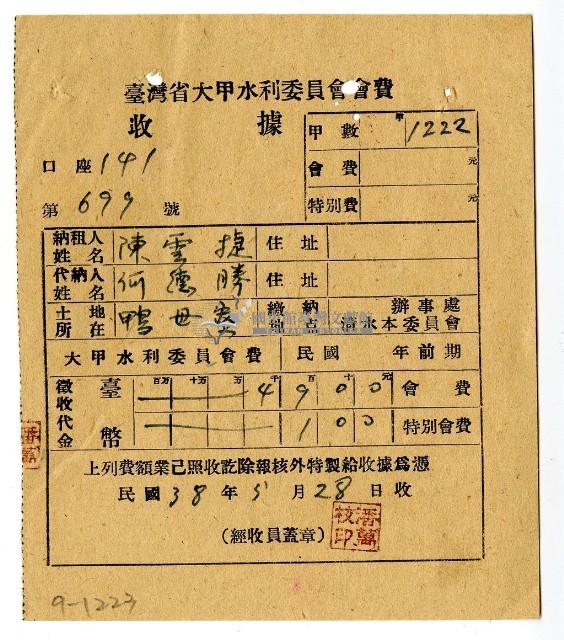 臺灣省大甲水利委員會會費
收 據
甲數 甲 1222
會費 元
特別費 元
口座 141
第 699 號
納租人姓名 陳雲捷 住址
代納人姓名 何德勝 住址
土地所在 鴨母寮 繳納地点 辦事處 清水本委員會
大甲水利委員會費 民國 年前期
徵收代金 臺幣 百万 十万 万 千 百 十 元
4900 會費
100 特別會費
上列費額業已照收訖除報核外特製給收據爲憑
民國 38 年 5 月 28 日收
(經收員蓋章)
潘萬枝印
9-1223